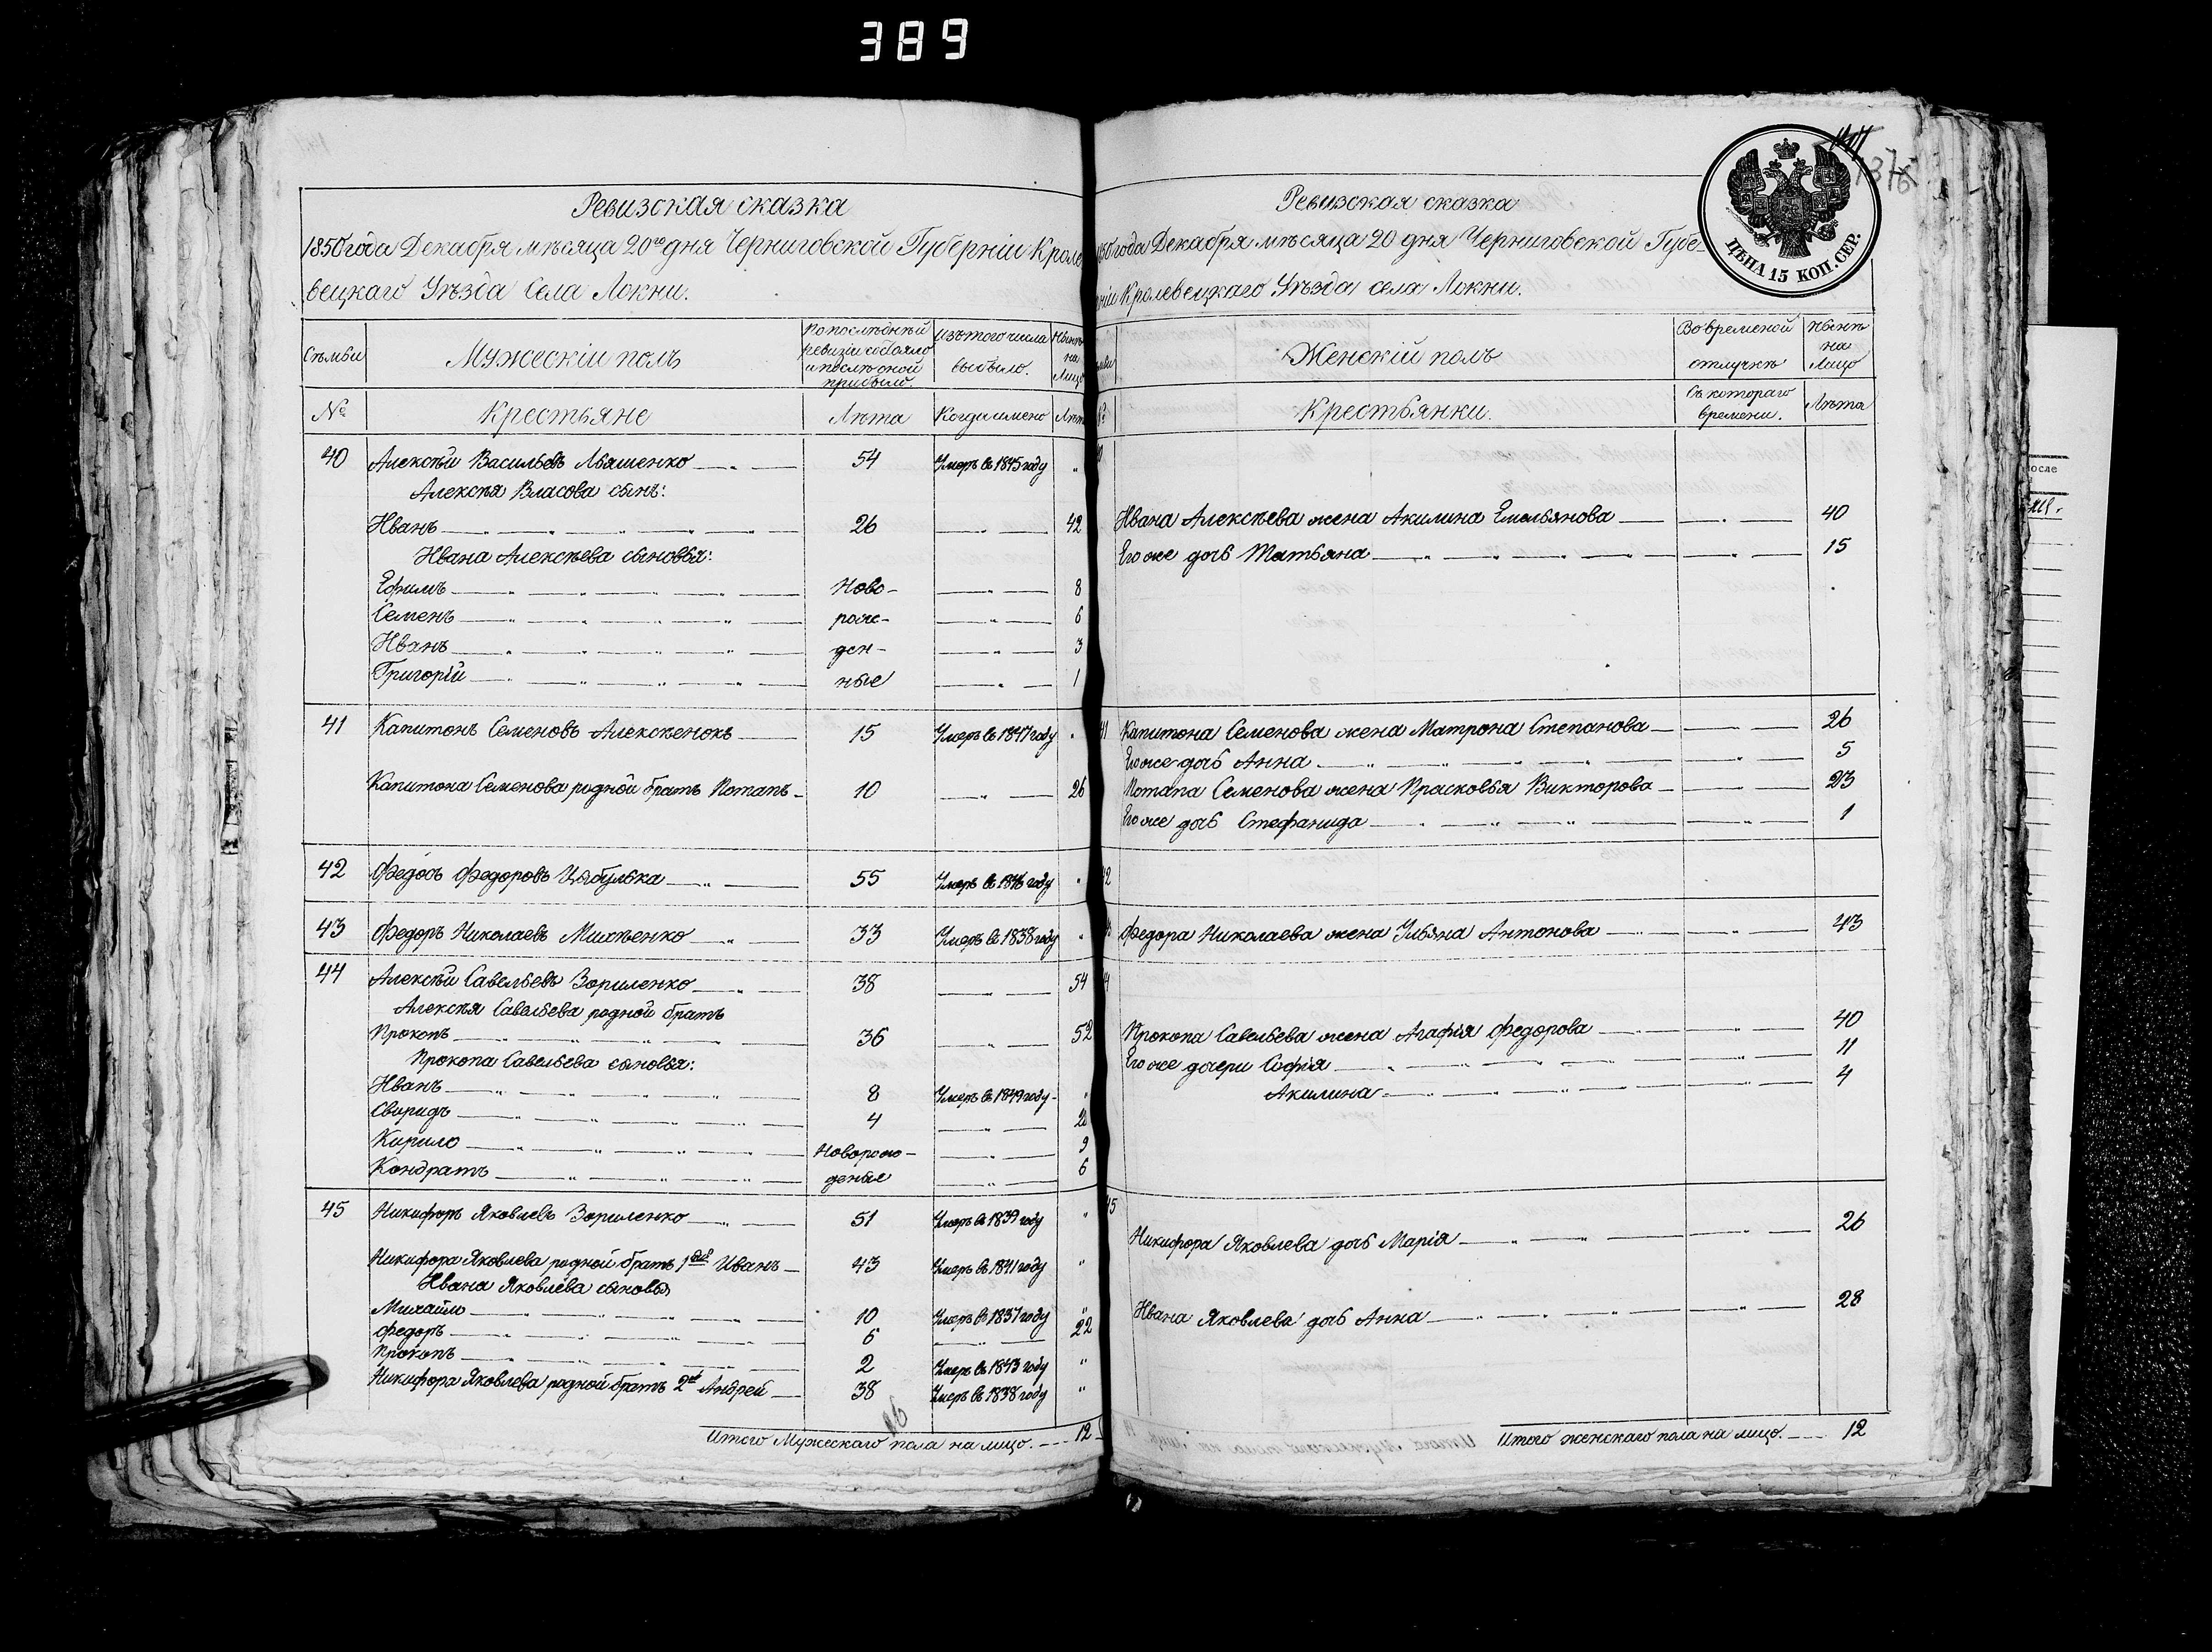 389
Ревизская сказка
1850 года Декабря мѣсяца 20го дня Черниговской Губерніи Кроле
вецкаго Уѣзда Села Локни.
Семьи
Мужескій полъ
По послѣдней ревизіи состояло и послѣ оной прибыло.
Изъ того числа выбыло.
Нынѣ на Лицо
№
Крестьяне
Лѣта
Когда имено
Лѣта
40 Алексѣй Васильевъ Ляшенко 54 Умеръ въ 1845 году
Алексѣя Власова сынъ:
Иванъ 26 42
Ивана Алексѣева сыновья:
Ефимъ Ново- 8
Семенъ рож- 6
Иванъ ден- 3
Григорій ные 1
41 Капитонъ Семеновъ Алексѣенокъ 15 Умеръ въ 1847 году
Капитона Семенова родной братъ Потапъ 10 26
42 Федосъ Федоровъ Цыбулька 55 Умеръ въ 1846 году
43 Федоръ Николаевъ Михѣенко 33 Умеръ въ 1838 году
44 Алексѣй Савельевъ Зориленко 38 54
Алексѣя Савельева родной братъ
Прокопъ 36 52
Прокопа Савельева сыновья:
Иванъ 8 Умеръ въ 1849 году
Свиридъ 4 20
Кирило Новорож- 9
Кондратъ деные 6
45 Никифоръ Яковлевъ Зориленко 51 Умеръ въ 1839 году
Никифора Яковлева родной братъ 1й Иванъ 43 Умеръ въ 1841 году
Ивана Яковлева сыновья
Михайло 10 Умеръ въ 1837 году
Федоръ 6 22
Прокопъ 2 Умеръ въ 1843 году
Никифора Яковлева родной братъ 2й Андрей 38 Умеръ въ 1838 году
Итого Мужескаго пола на лицо. 12
Ревизская сказка
50 года Декабря мѣсяца 20 дня Черниговской Губе-
ніи Кролевецкаго Уѣзда села Локни.
ЦѢНА 15 КОП. СЕР.
Женскій полъ
Во временой отлучкѣ
Нынѣ на Лицо
Крестьянки.
Съ котораго времени.
Лѣта
Ивана Алексѣева жена Акилина Емельянова 40
Его же дочь Татьяна 15
41 Капитона Семенова жена Матрона Степанова 26
Его же дочь Анна 5
Потапа Семенова жена Прасковья Викторова 23
Его же дочь Стефанида 1
Федора Николаева жена Ульяна Антонова 43
Прокопа Савельева жена Агафія Федорова 40
Его же дочери Софія 11
Акилина 4
Никифора Яковлева дочь Марія 26
Ивана Яковлева дочь Анна 28
Итого женскаго пола на лицо. 12